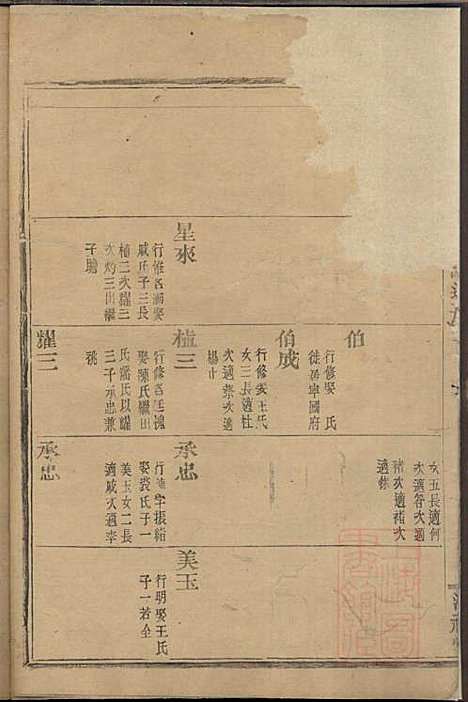 星來
行惟名
娶
戚氏子三長
植三次耀三
次灼三出繼
子聰
伯
行修娶 氏
徙居寧國府
伯成
行修娶王氏
女三長適杜
次適蔡次適
楊
植三
行修名廷槐
娶陳氏繼田
氏潘氏以耀
三子承忠兼
祧
耀三
女五長適何
次適咎次適
豬次適褚次
適蔡
承忠
字振緒
娶裘氏子一
美玉女二長
適戚次適李
承忠
美玉
行明娶王氏
子一若全